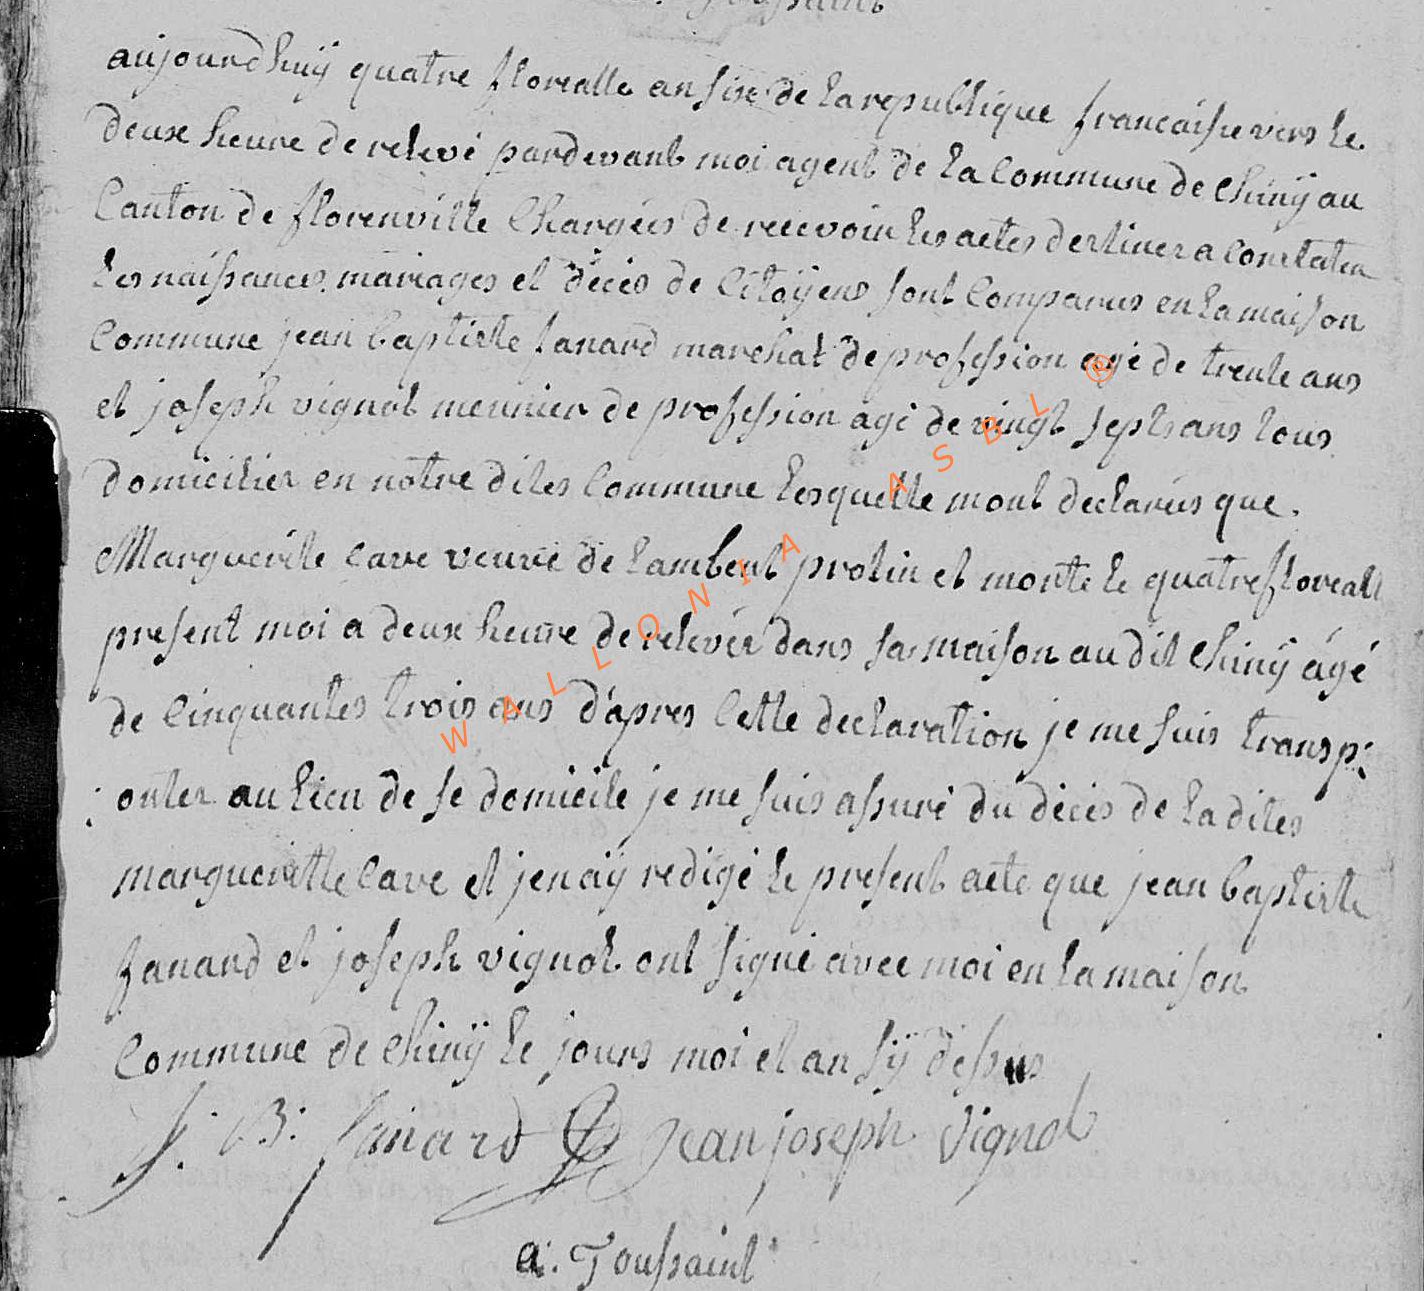 Toussaint
aujourdhuÿ quatre florealle an sixe de la republique francaisse vers le
deuxe heure de relevé pardevant moi agent de la Commune de Chinÿ au
Canton de florenville Chargées de recevoir les actes dertiner a Constater
les naissances, mariages et décés de Citoÿens sont Comparus en la maison
Commune jean baptiste fanard marchat de profession agé de trente ans
et joseph vignot meunier de profession agé de vingt septs ans tous
domicilier en notre dites Commune lesquelle mont declarées que.
Marguerite Cave veuve de lambert protin et morte le quatre floreall
present moi a deuxe heure de relevér dans sa maison audit Chinÿ ágé
de Cinquantes trois ans d'apres Cette declaration je me suis transp:
: onter au lieu de se domicile je me suis assuré du décés de la dites
marguerette Cave et jenaÿ redigé le present acte que jean baptiste
fanard et joseph vignot ont signé avec moi en la maison
Commune de Chinÿ le jours moi et an sÿ dessus
J: B: fanard Jean joseph Vignot
a: Toussaint
WALLONIA ASBL ®